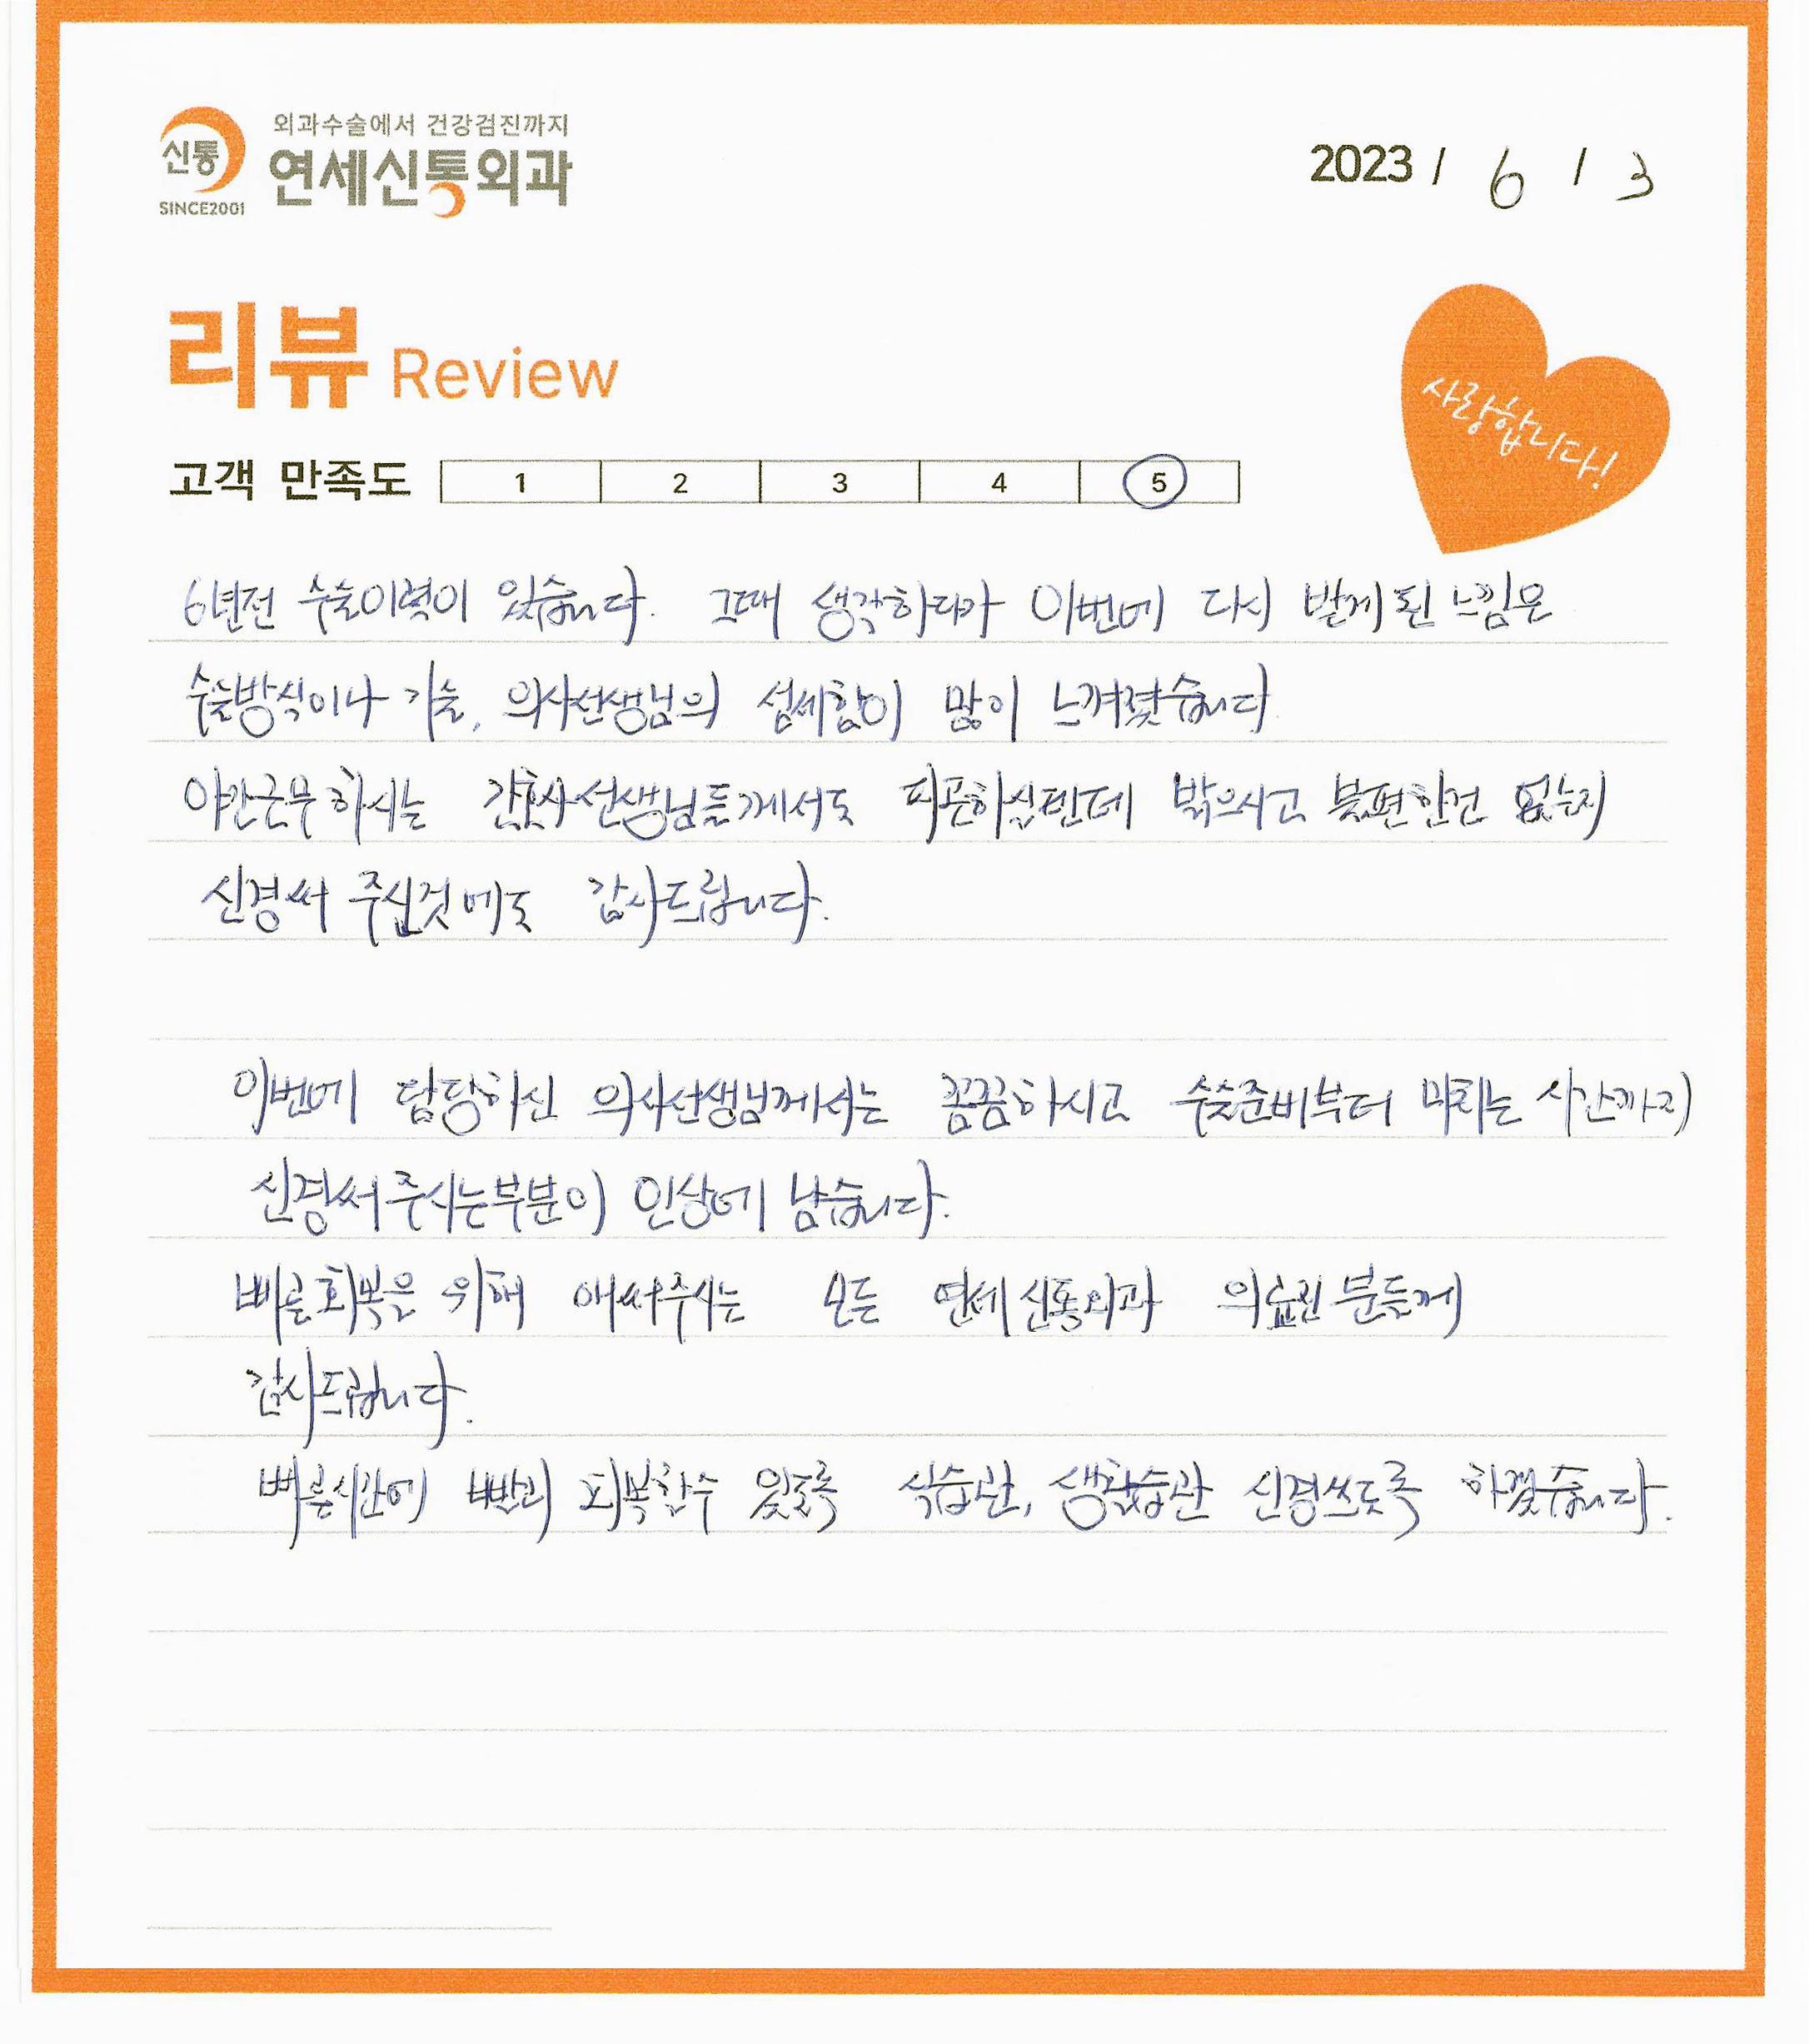 외과수술에서 건강검진까지
신통
연세신통외과
SINCE2001
2023 / 6 / 3
리뷰 Review
사랑합니다!
고객 만족도 1 2 3 4 5
6년전 수술이력이 있습니다. 그때 생각하다가 이번에 다시 받게 된 느낌은
수술방식이나 기술, 의사선생님의 섬세함이 많이 느껴졌습니다
야간근무하시는 간호사선생님들께서도 피곤하실텐데 밝으시고 불편한건 없는지
신경써 주신것에도 감사드립니다.
이번에 담당하신 의사선생님께서는 꼼꼼하시고 수술준비부터 마치는 시간까지
신경써주시는부분이 인상에 남습니다.
빠른회복을 위해 애써주시는 모든 연세신통외과 의료진분들께
감사드립니다.
빠른시간에 빨리 회복할수 있도록 식습관, 생활습관 신경쓰도록 하겠습니다.